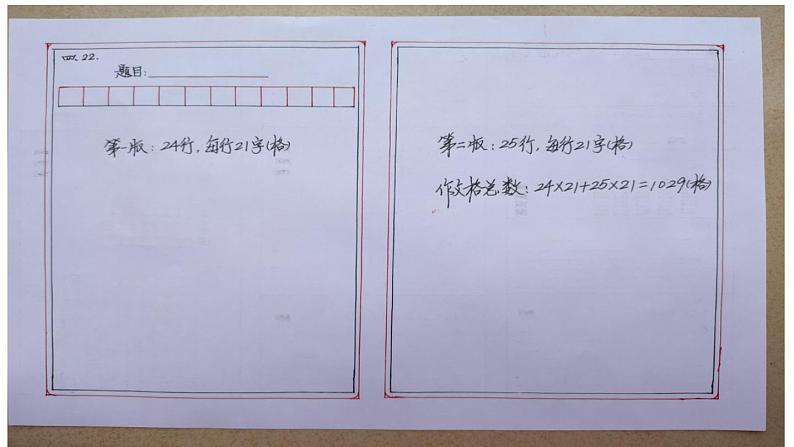 四、22.
题目:
第一版：24行，每行21字(格)
第二版：25行，每行21字(格)
作文格总数：24×21+25×21=1029(格)